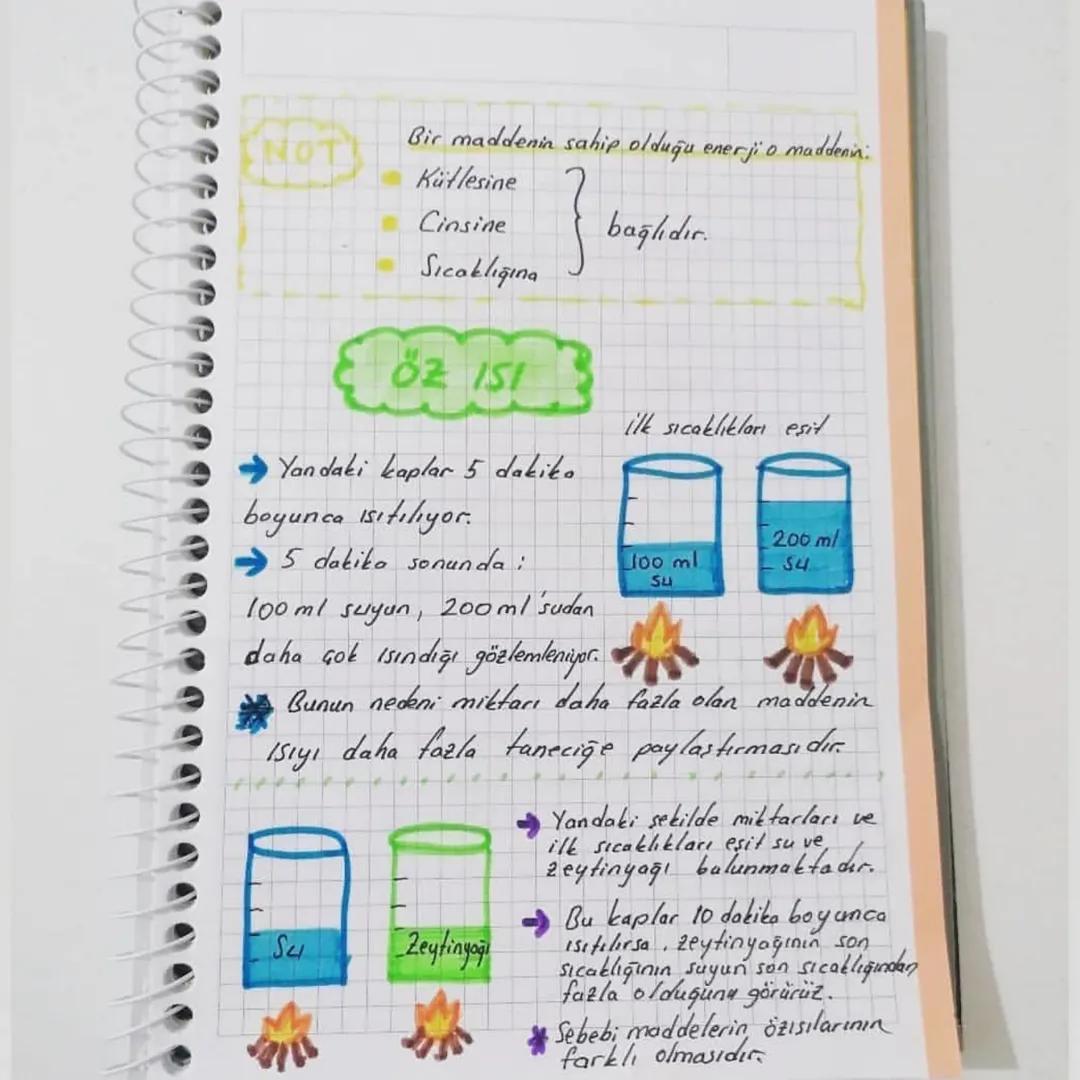 NOT
Bir maddenin sahip olduğu enerji o maddenin:
Kütlesine
Cinsine
Sıcaklığına
bağlıdır.
ÖZ ISI
ilk sıcaklıkları eşit
Yandaki kaplar 5 dakika
boyunca ısıtılıyor.
5 dakika sonunda :
100 ml suyun, 200 ml 'sudan
daha çok ısındığı gözlemleniyor.
100 ml
su
200 ml
su
Bunun nedeni miktarı daha fazla olan maddenin
ısıyı daha fazla taneciğe paylaştırmasıdır.
Su
Zeytinyağı
Yandaki şekilde miktarları ve
ilk sıcaklıkları eşit su ve
zeytinyağı bulunmaktadır.
Bu kaplar 10 dakika boyunca
ısıtılırsa, zeytinyağının son
sıcaklığının suyun son sıcaklığından
fazla olduğunu görürüz.
Sebebi maddelerin özısılarının
farklı olmasıdır.